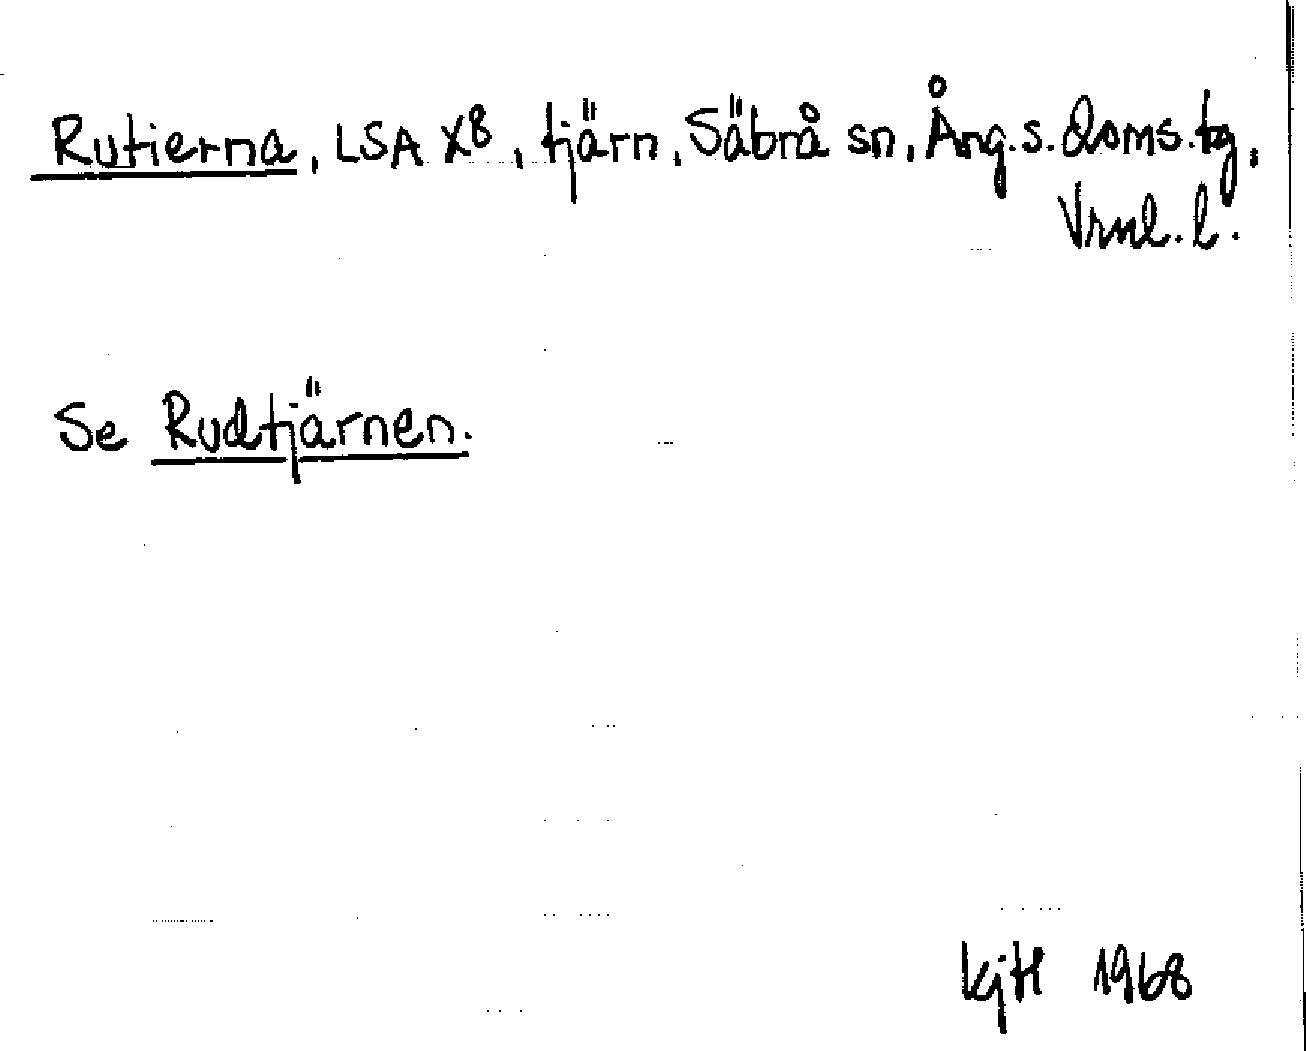 Rutierna, LSA X8, tjärn, Säbrå sn, Ång.s. doms.tg,
Vrnl. l.
Se Rudtjärnen.
KjH 1968